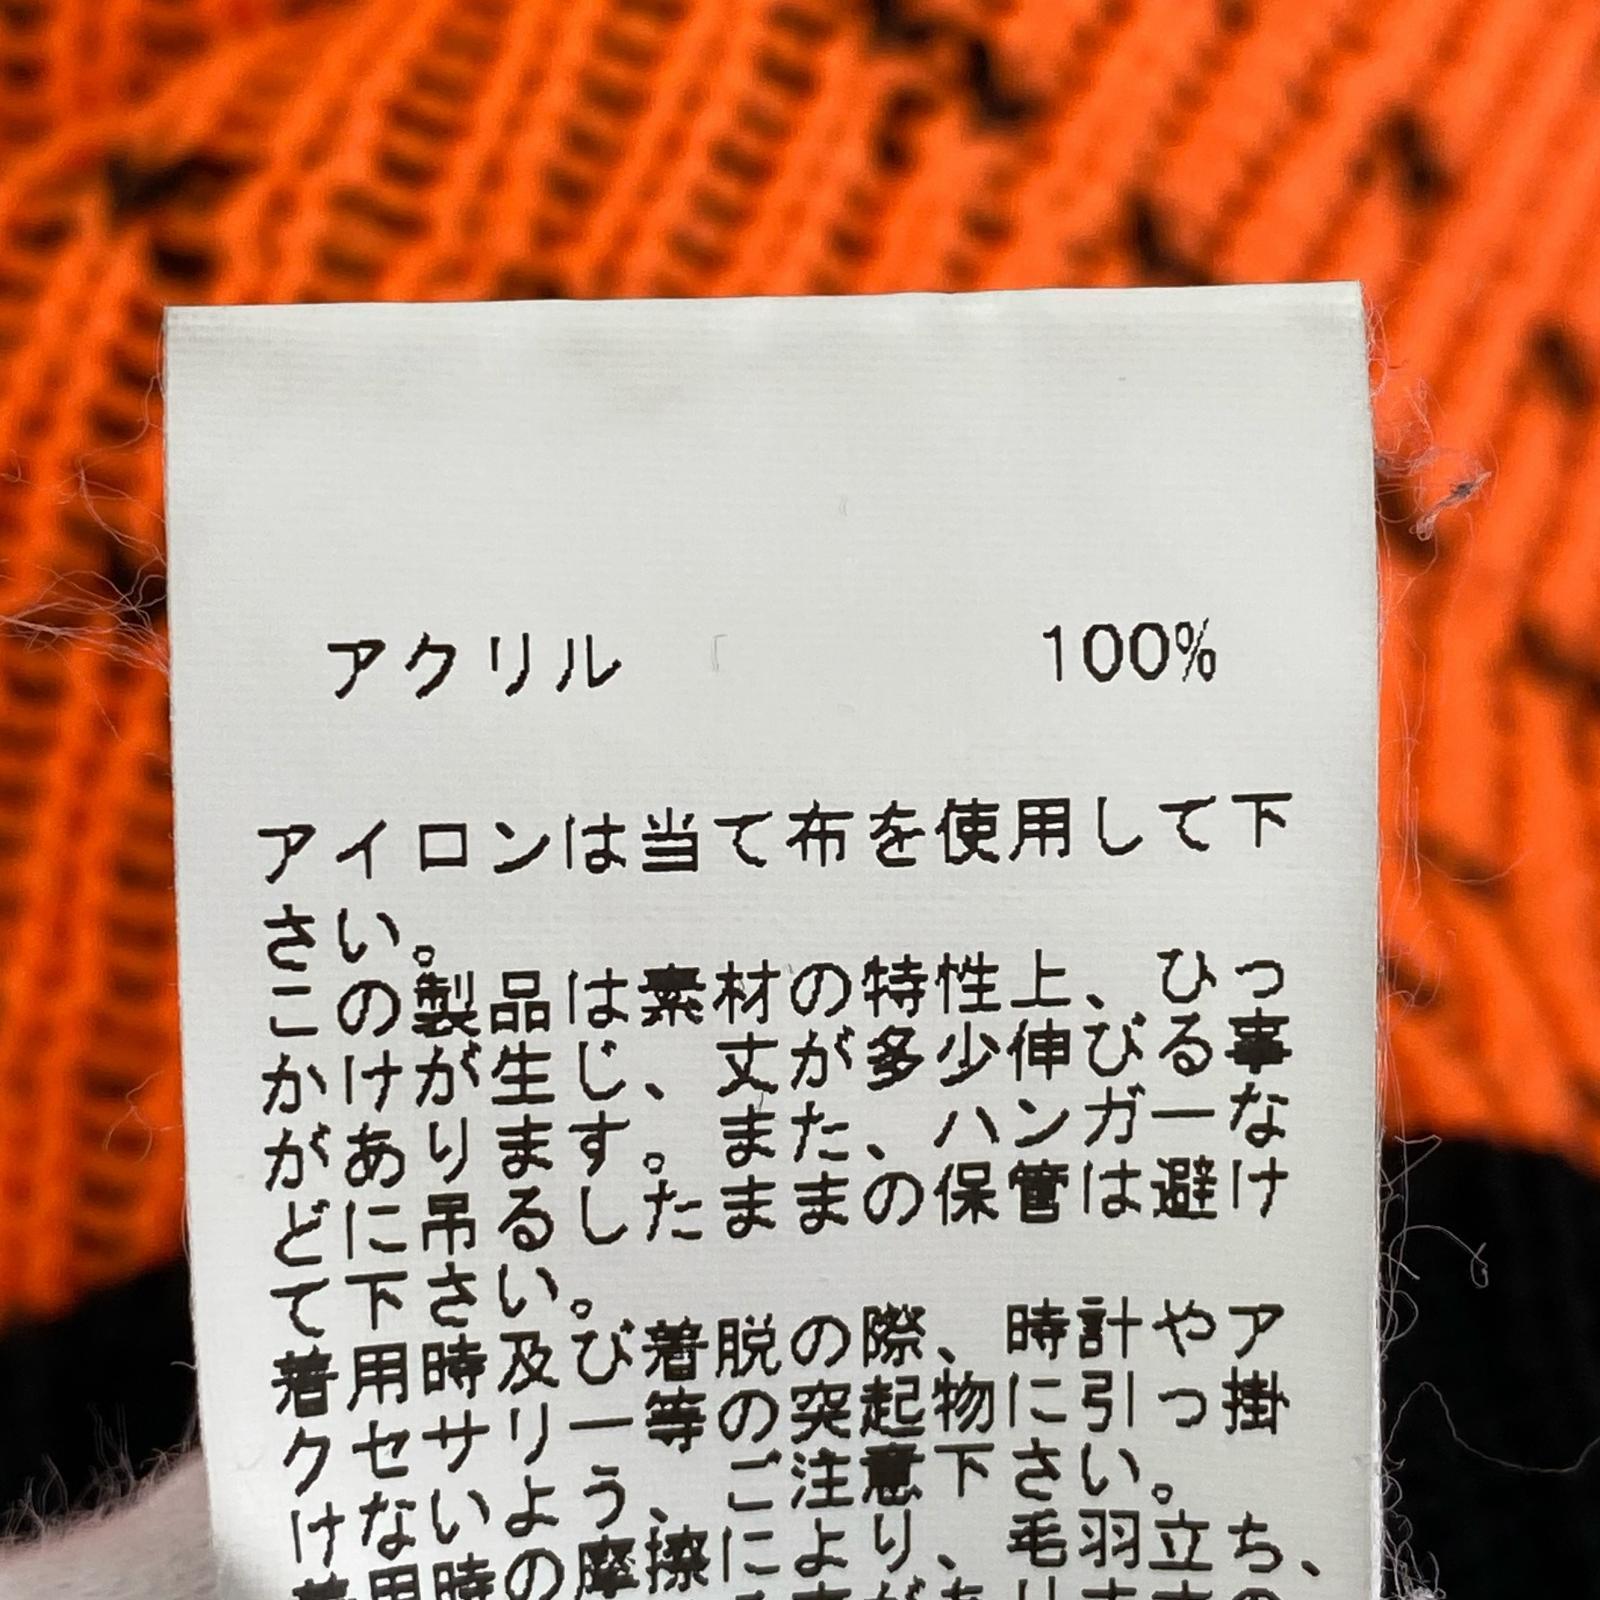 アクリル 100%
アイロンは当て布を使用して下
さい。
この製品は素材の特性上、ひっ
かけが生じ、丈が多少伸びる事
があります。また、ハンガーな
どに吊るしたままの保管は避け
て下さい。
着用時及び着脱の際、時計やア
クセサリー等の突起物に引っ掛
けないよう、ご注意下さい。
着用時の摩擦により、毛羽立ち、